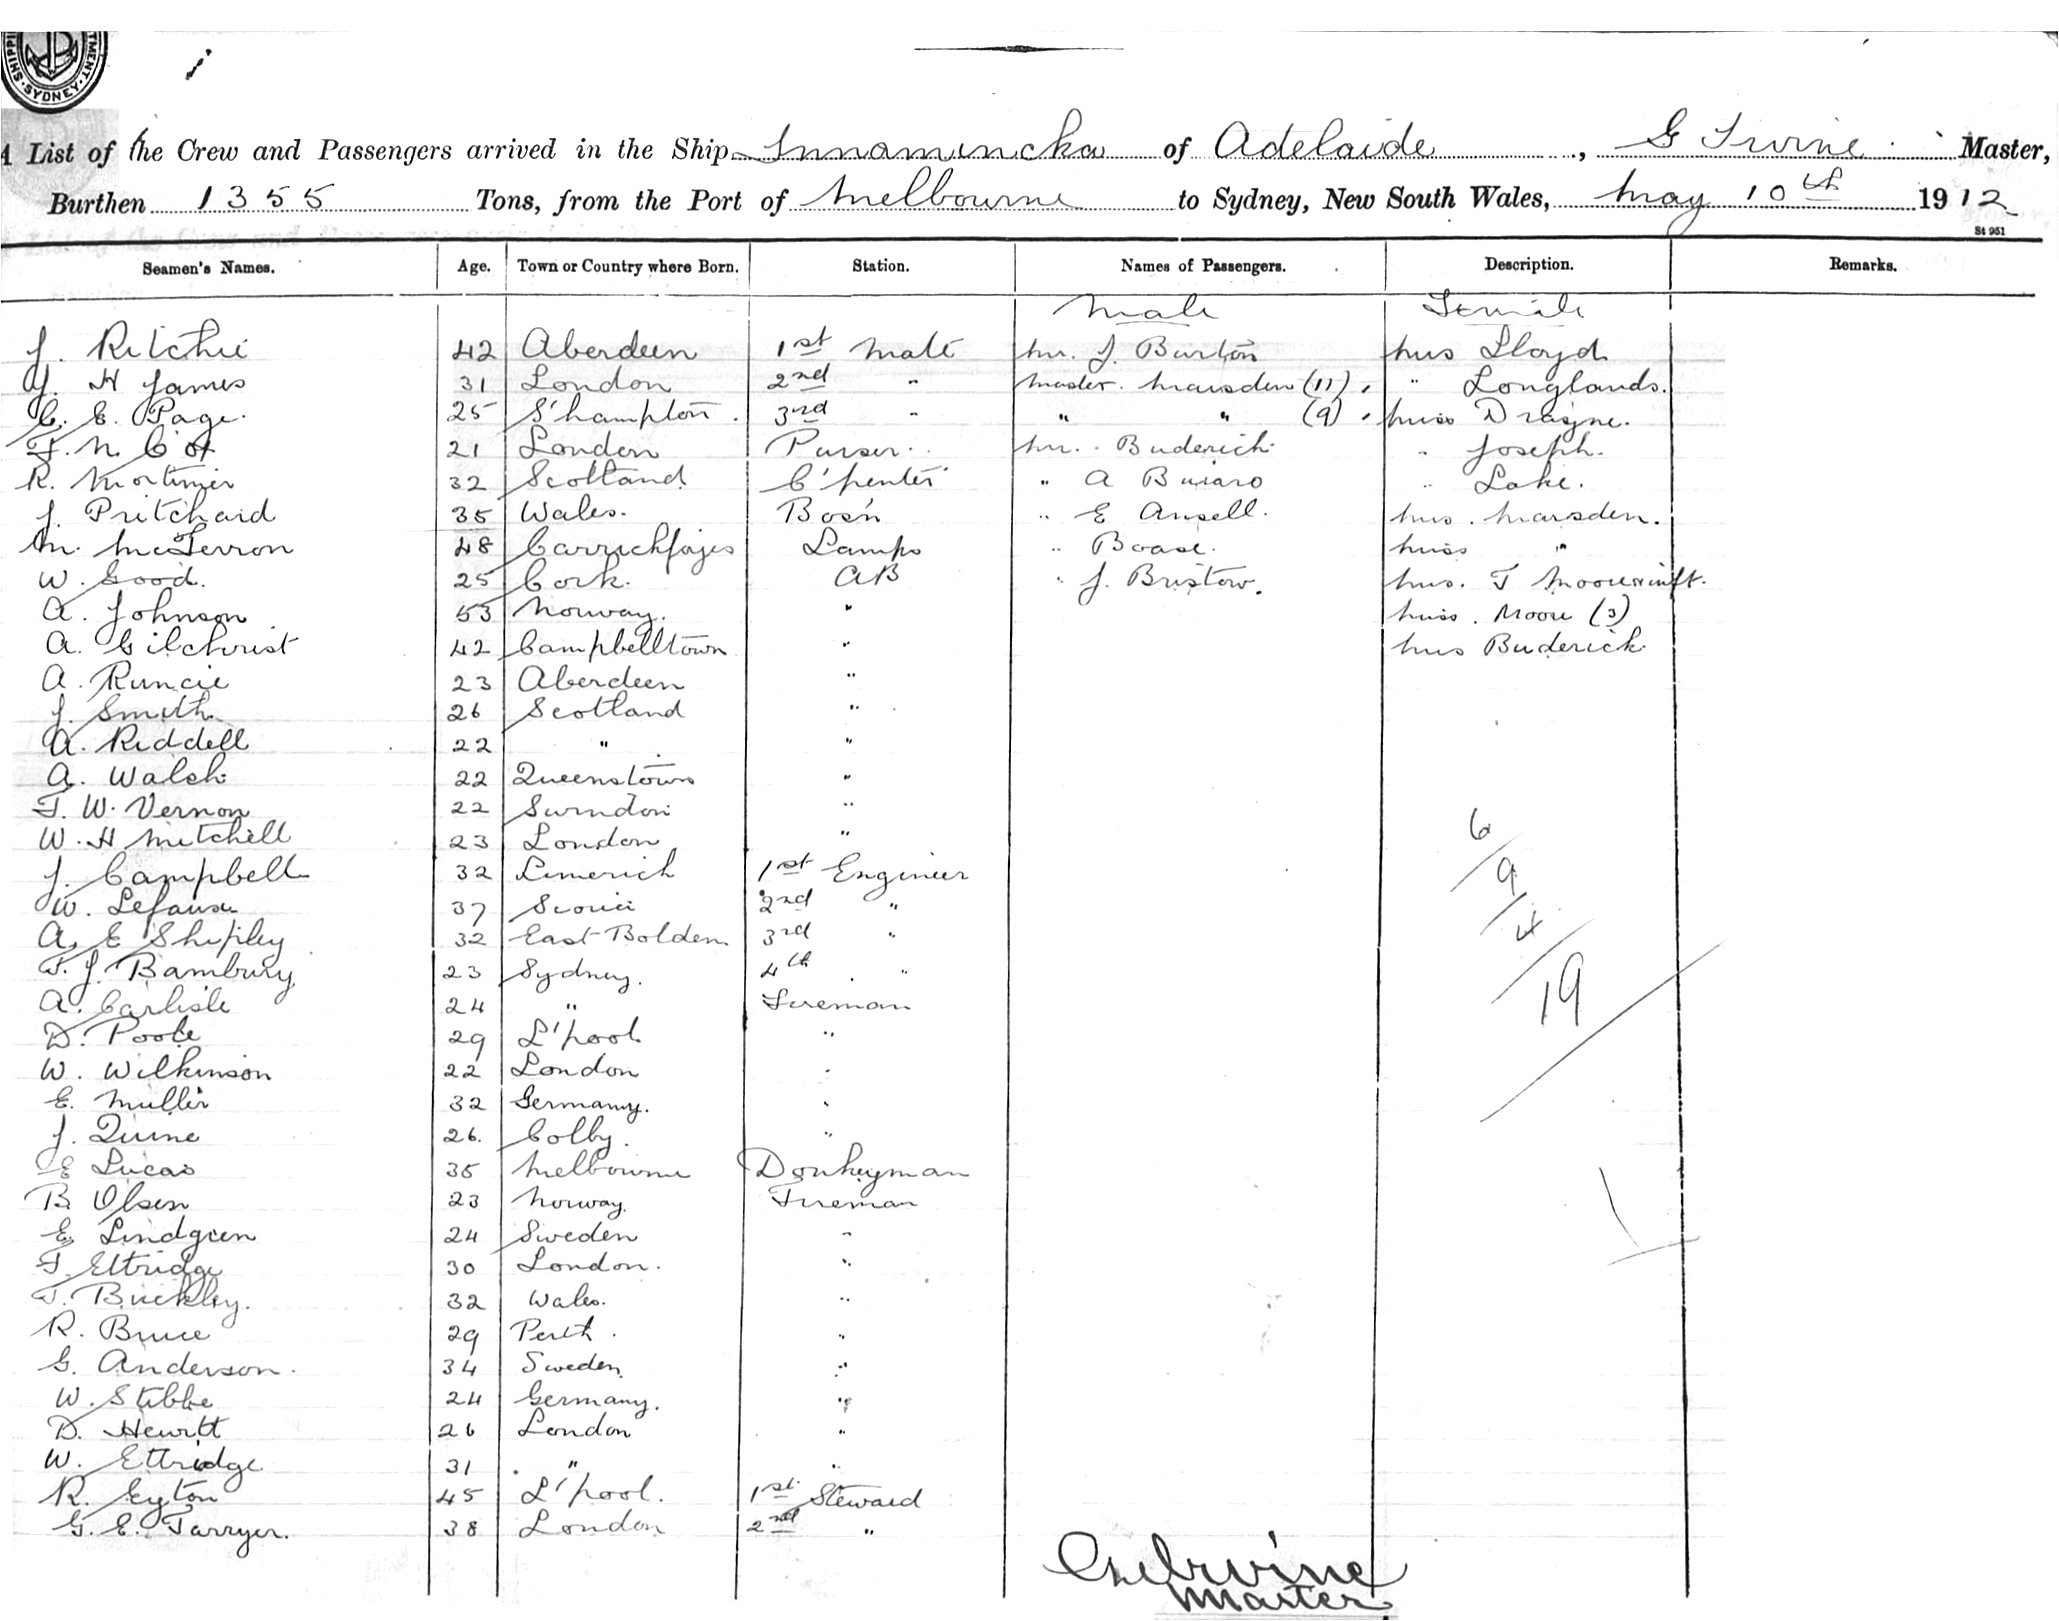 SHIPPI TMENT. SYDNEY.
A List of the Crew and Passengers arrived in the Ship Innamincka of Adelaide, G Irvine Master,
Burthen 1355 Tons, from the Port of Melbourne to Sydney, New South Wales, May 10th 1912
St 951
Seamen's Names. Age. Town or Country where Born. Station. Names of Passengers. Description. Remarks.
Male Female
J. Ritchie 42 Aberdeen 1st Mate Mr. J. Burton Mrs Lloyd
J. H James 31 London 2nd " Master. Marsden (11) " Longlands.
C. E. Page. 25 S'hampton. 3rd " " " (9) Miss Draysne.
F. N. Cox 21 London Purser. Mr. Buderich " Joseph.
R. Mortimer 32 Scotland C'penter " A " Lake.
J. Pritchard 35 Wales. Bosn " E Ansell. Mrs. Marsden.
M. McFerron 48 Carrickfages Lamps " Boase. Miss "
W. Good. 25 Cork. AB " J. Bristow. Mrs. T
A. Johnson 53 Norway. " Miss. Moore (3)
A. Gilchrist 42 Campbelltown " Mrs Buderick
A. Runcie 23 Aberdeen "
J. Smith 26 Scotland "
A. Riddell 22 " "
A. Walsh 22 Queenstown "
F. W. Vernon 22 Swindon "
W. H Mitchell 23 London "
J. Campbell 32 Limerich 1st Engineer
W. 37 2nd "
A. E Shipley 32 East Bolden 3rd "
T. J. Bambury 23 Sydney. 4th "
A. Carlisle 24 " Fireman
D. Poole 29 L'pool "
W. Wilkinson 22 London "
E. Muller 32 Germany. "
J. Quine 26. Colby. "
E Lucas 35 Melbourne Donkeyman
B Olsen 23 Norway. Fireman
E Lindgren 24 Sweden "
F. Ettridge 30 London. "
T. Buckley. 32 Wales. "
R. Bruce 29 Perth. "
G. Anderson. 34 Sweden "
W. Stibbe 24 Germany. "
D. Hewitt 26 London "
W. Ettridge 31 " "
R. Eyton 45 L'pool. 1st Steward
G. E. Tarryer. 38 London 2nd "
6/9/4/19
Irvine
Master